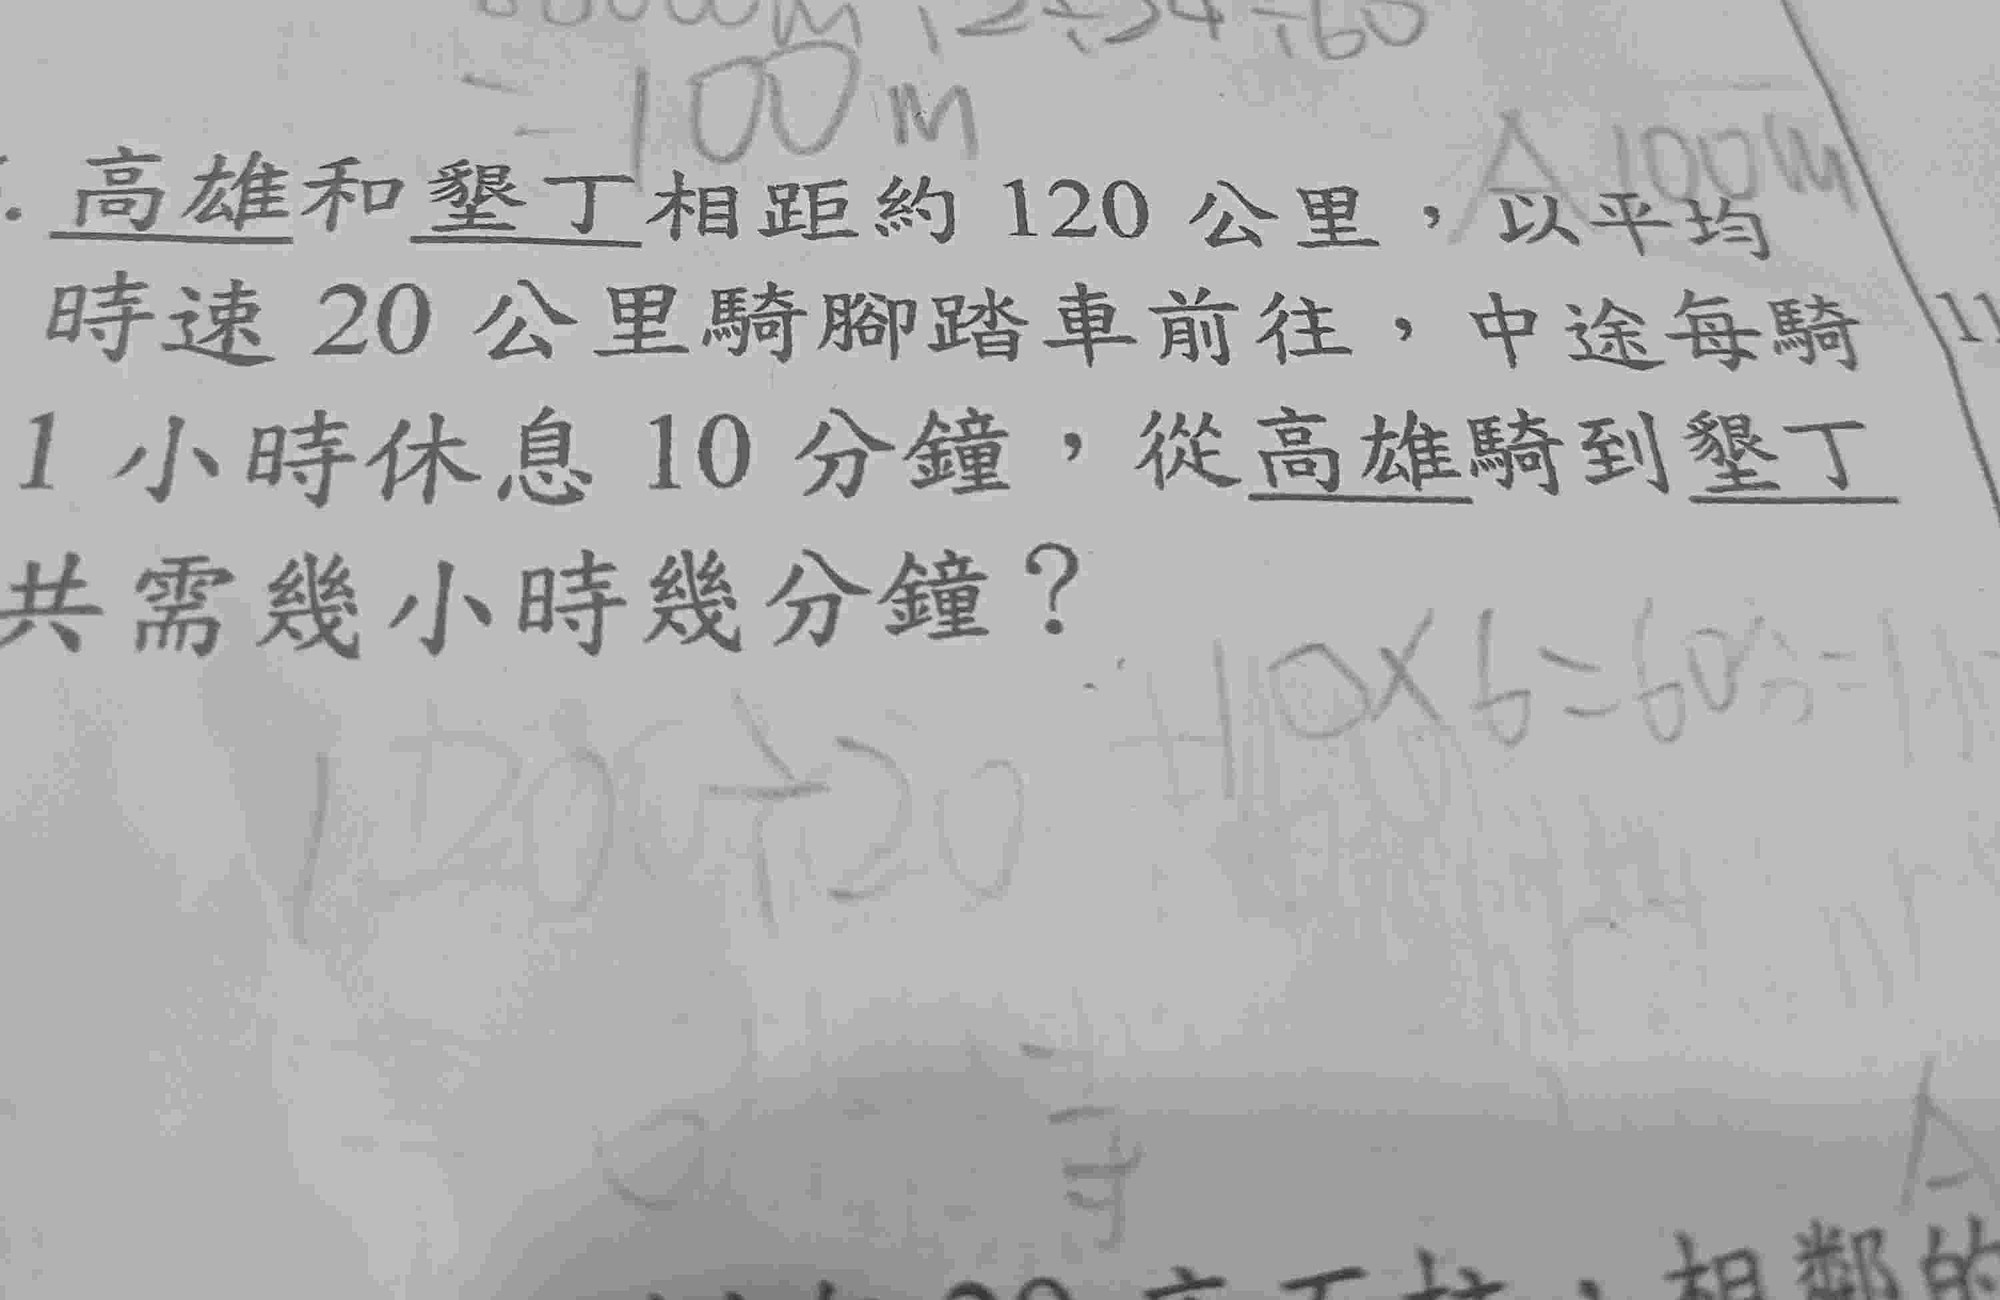 =100m
A 100m
高雄和墾丁相距約 120 公里，以平均
時速 20 公里騎腳踏車前往，中途每騎
1 小時休息 10 分鐘，從高雄騎到墾丁
共需幾小時幾分鐘？
10×6=60分=1
120÷20
A